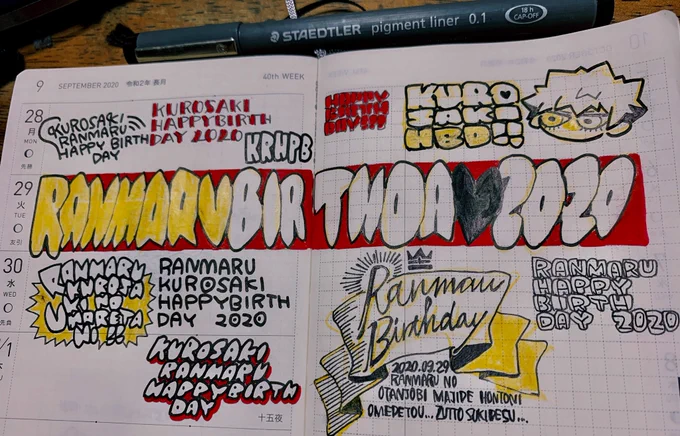 STAEDTLER pigment liner 0.1
18 h
CAP-OFF
9 SEPTEMBER 2020 令和2年 長月
40th WEEK
28
月
MON
先勝
KUROSAKI
RANMARU
HAPPY BIRTH
DAY
KUROSAKI
HAPPYBIRTH
DAY 2020
KRHPB
HAPPY
BIRTH
DAY!!!
KURO
SAKI
HBD!!
29
火
TUE
友引
RANMARUBIR THDA 2020
30
水
WED
先負
RANMARU
KUROSA
KI NO
UMARETA
HI!!
RANMARU
KUROSAKI
HAPPYBIRTH
DAY 2020
KUROSAKI
RANMARU
HAPPYBIRTH
DAY
十五夜
Ranmaru
Birthday
2020.09.29
RANMARU NO
OTANJOBI MAJIDE HONTONI
OMEDETOU... ZUTTO SUKIDESU...
RANMARU
HAPPY
BIRTH
DAY 2020
/1